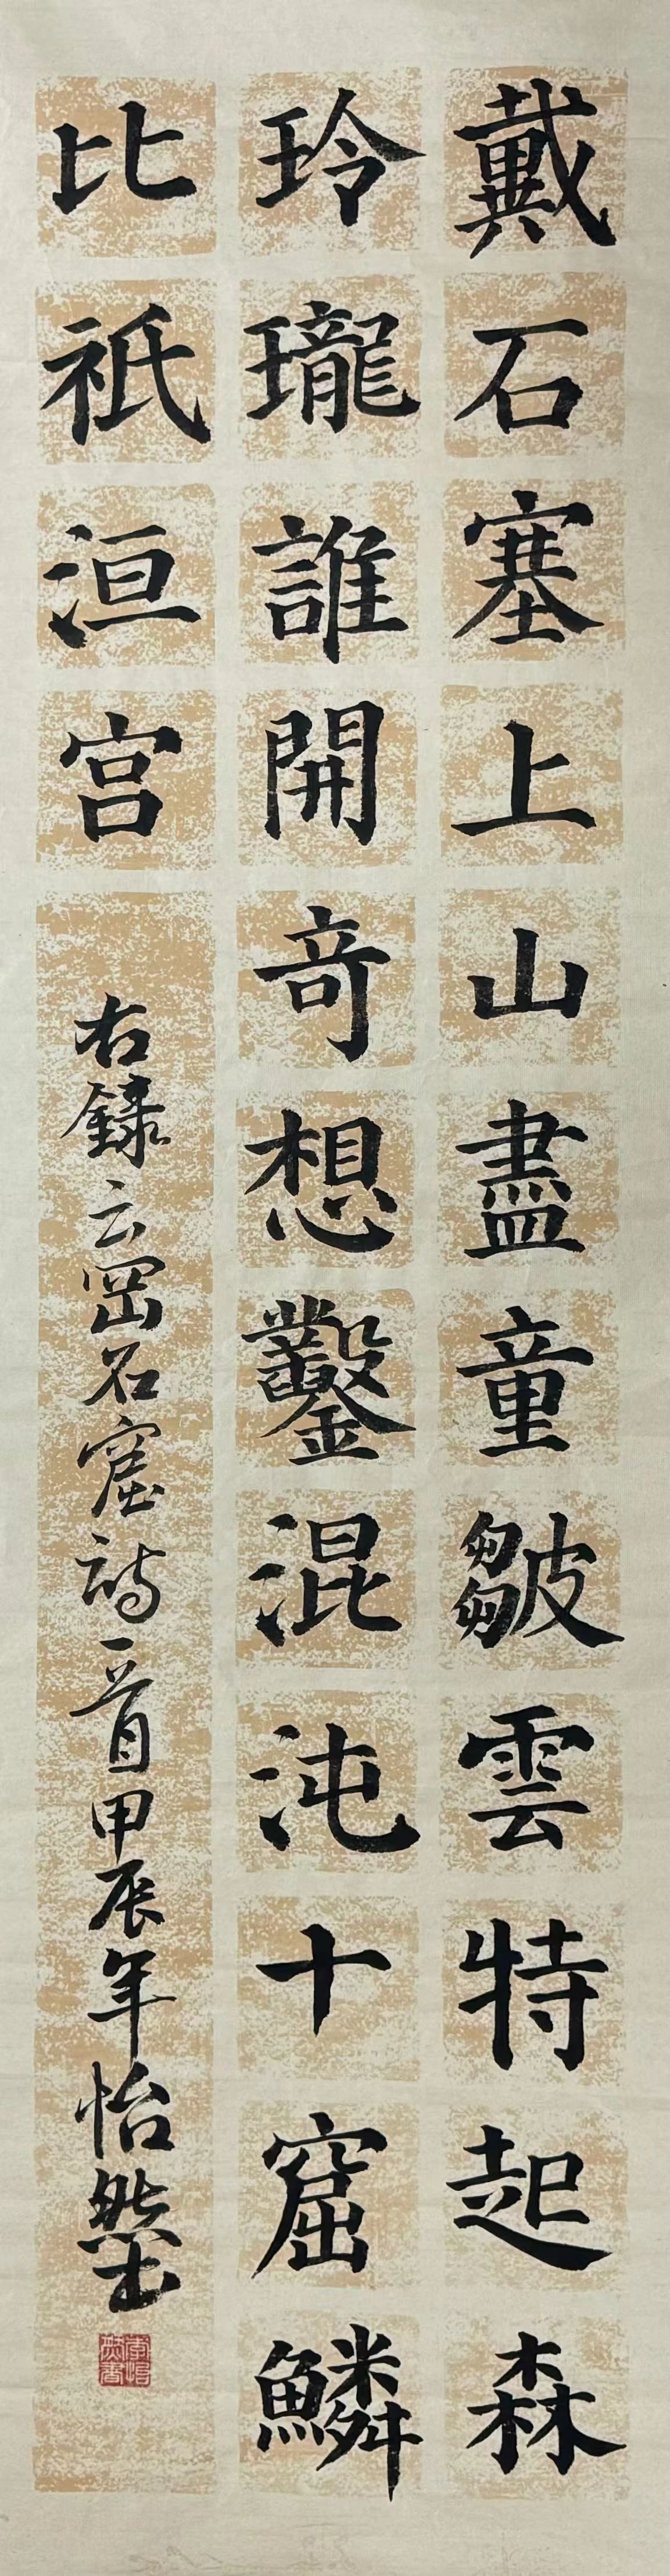 戴石塞上山盡童皺雲特起森
玲瓏誰開奇想鑿混沌十窟鱗
比祇洹宮
右録云岡石窟詩一首甲辰年怡然書